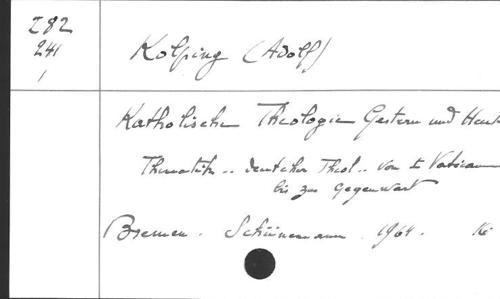 Z82
241
1
Kolping (Adolf)
Katholische Theologie Gestern und Heut
Thematik .. deutscher Theol .. von I Vatican
bis zur Gegenwart
Bremen . Schünemann . 1964 .